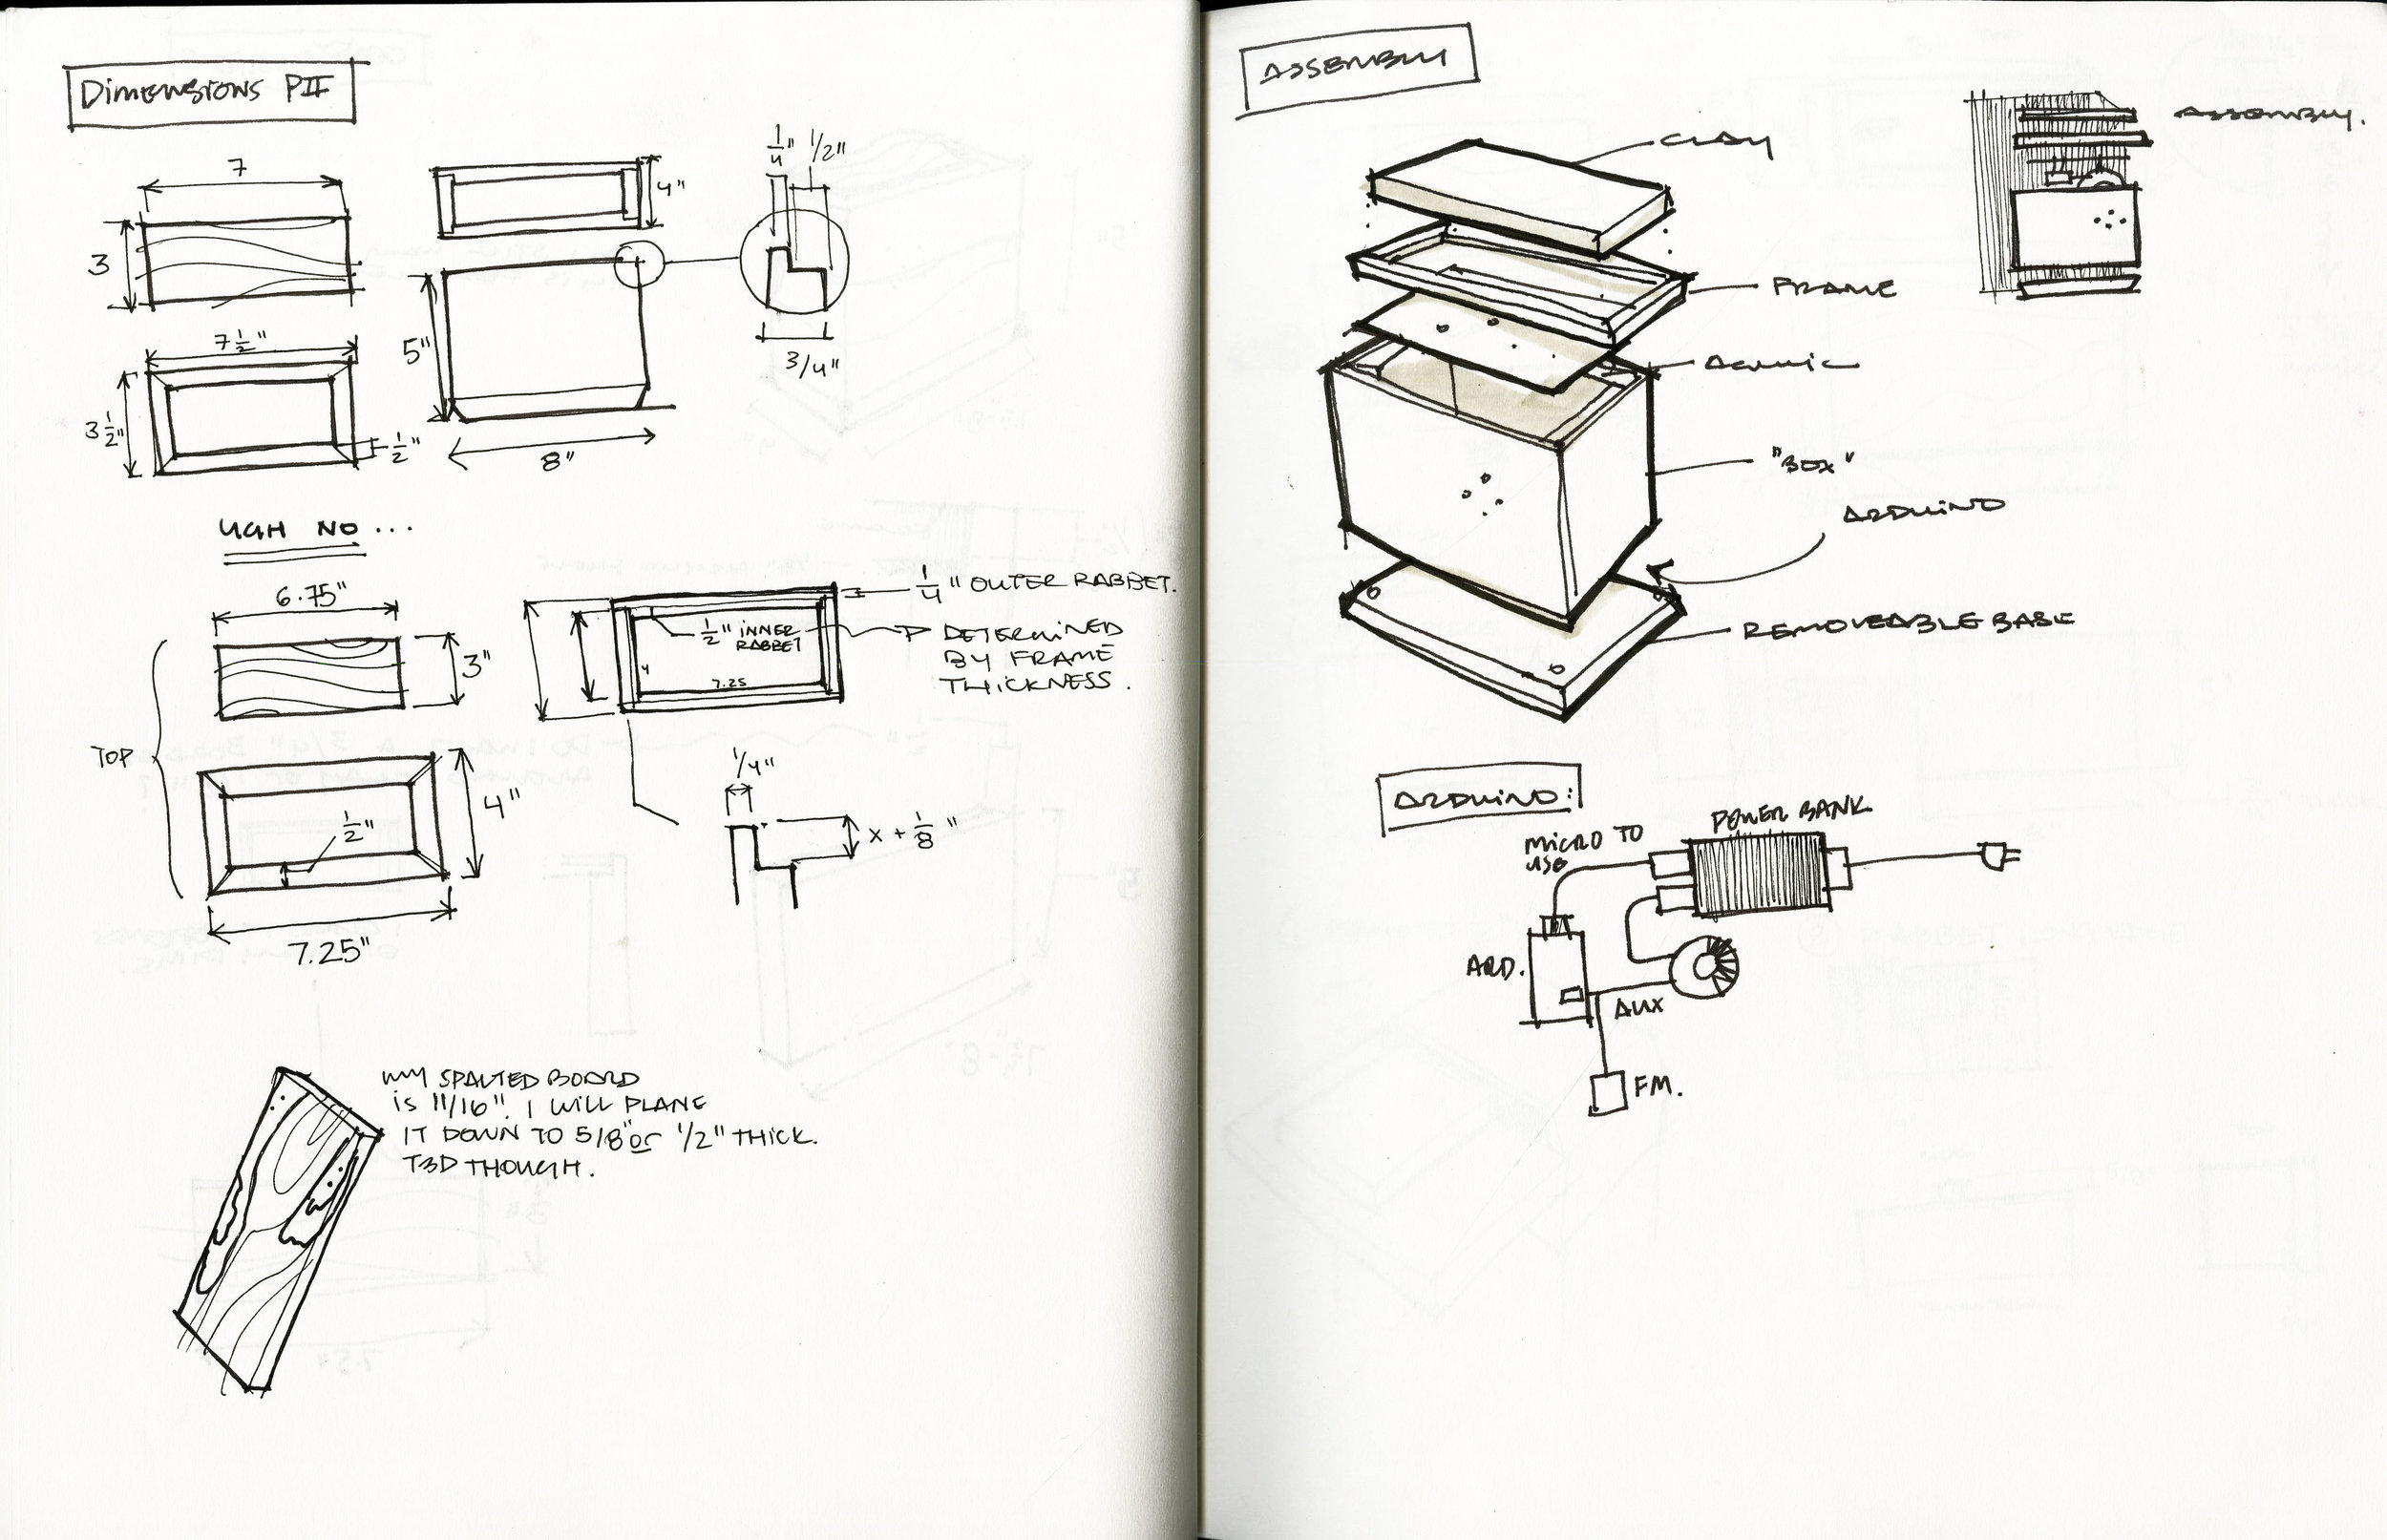 DIMENSIONS PII
7
3
4"
1/4" 1/2"
3/4"
5"
8"
7 1/2"
3 1/2"
1/2"
UGH NO...
6.75"
3"
TOP
4"
1/2"
7.25"
1/4" OUTER RABBET.
1/2" INNER
RABBET
4
7.25
DETERMINED
BY FRAME
THICKNESS.
1/4"
X + 1/8"
MY SPALTED BOARD
IS 11/16". I WILL PLANE
IT DOWN TO 5/8" or 1/2" THICK.
TBD THOUGH.
ASSEMBLY
CLAY
FRAME
ACRYLIC
"BOX"
ARDUINO
REMOVEABLE BASE
ASSEMBLY.
ARDUINO:
MICRO TO
USB
POWER BANK
ARD.
AUX
FM.